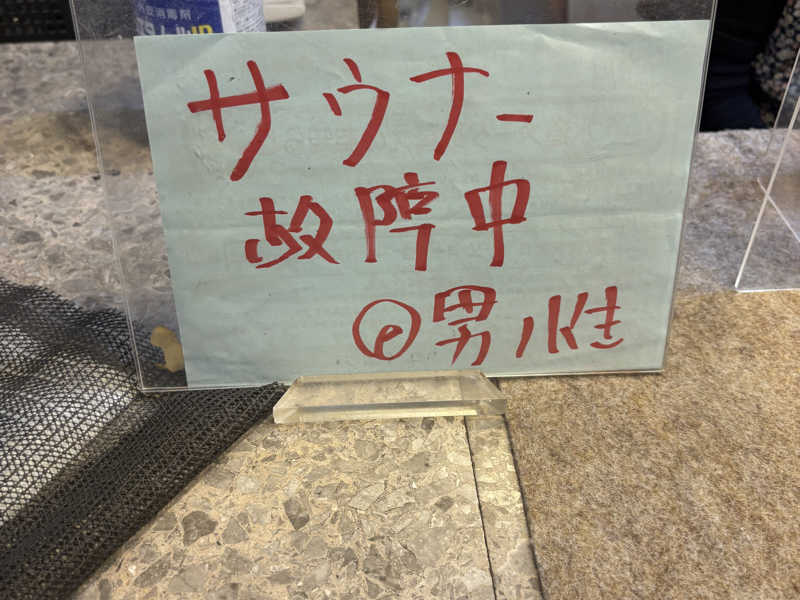 サウナー
故障中
@男性